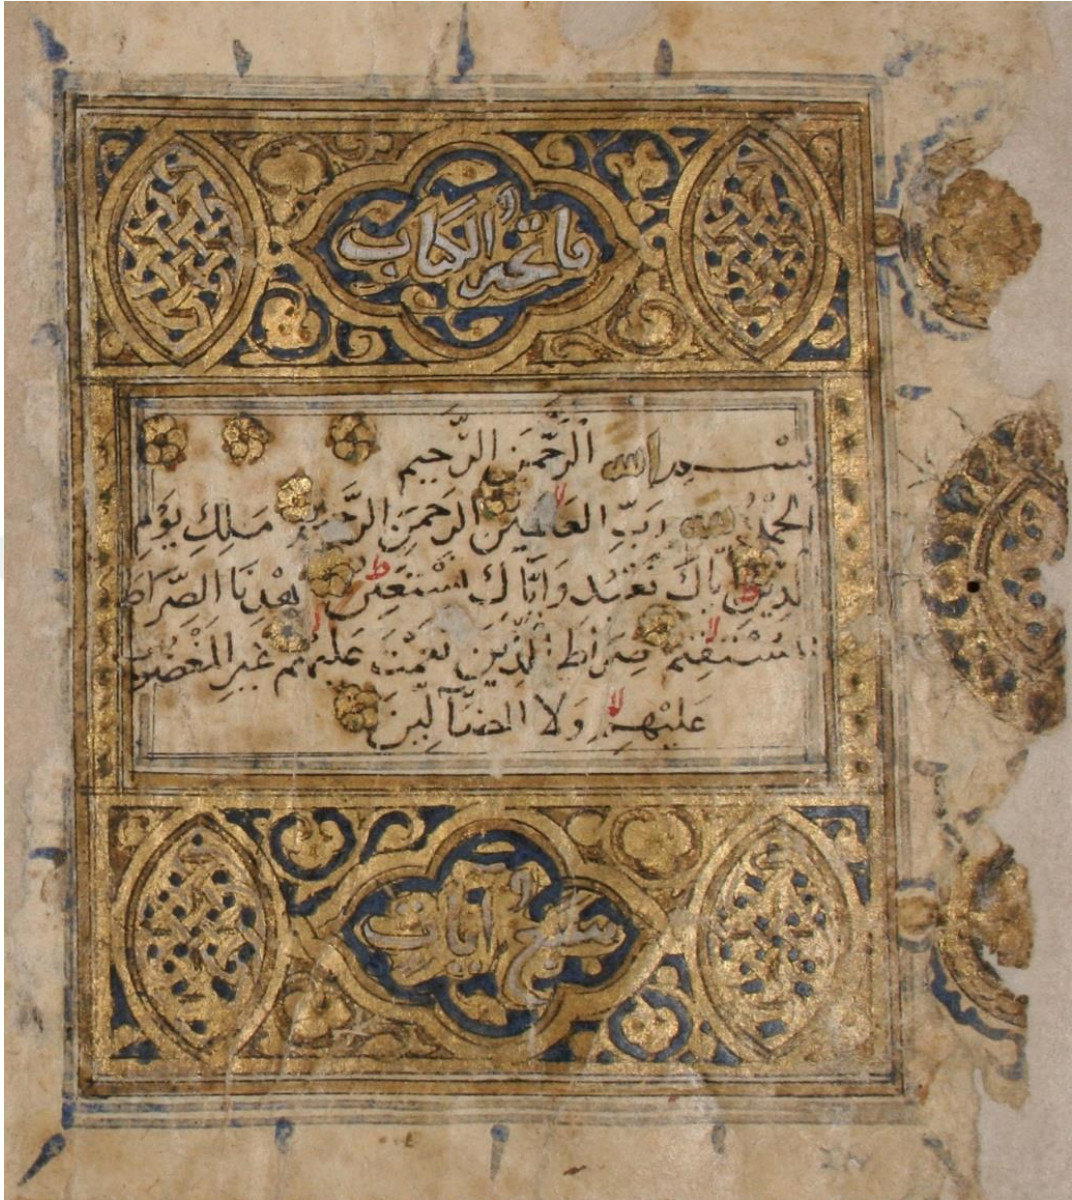 فاتحة الكتاب
بسم الله الرَّحْمَن الرَّحِيم
الحمْدُ لله رَبِّ العالمين الرحمن الرَّحيم مَلِكِ يَوْم
الدين إيَّاك نعبد وإيَّاك نستعين اهْدِنَا الصِّرَاطَ
المسْتَقِيم صِرَاط الَّذِين أنعمْتَ عليهم غير المغضُوب
عَلَيْهِم وَلا الضَّآلِّين
سبع آيات